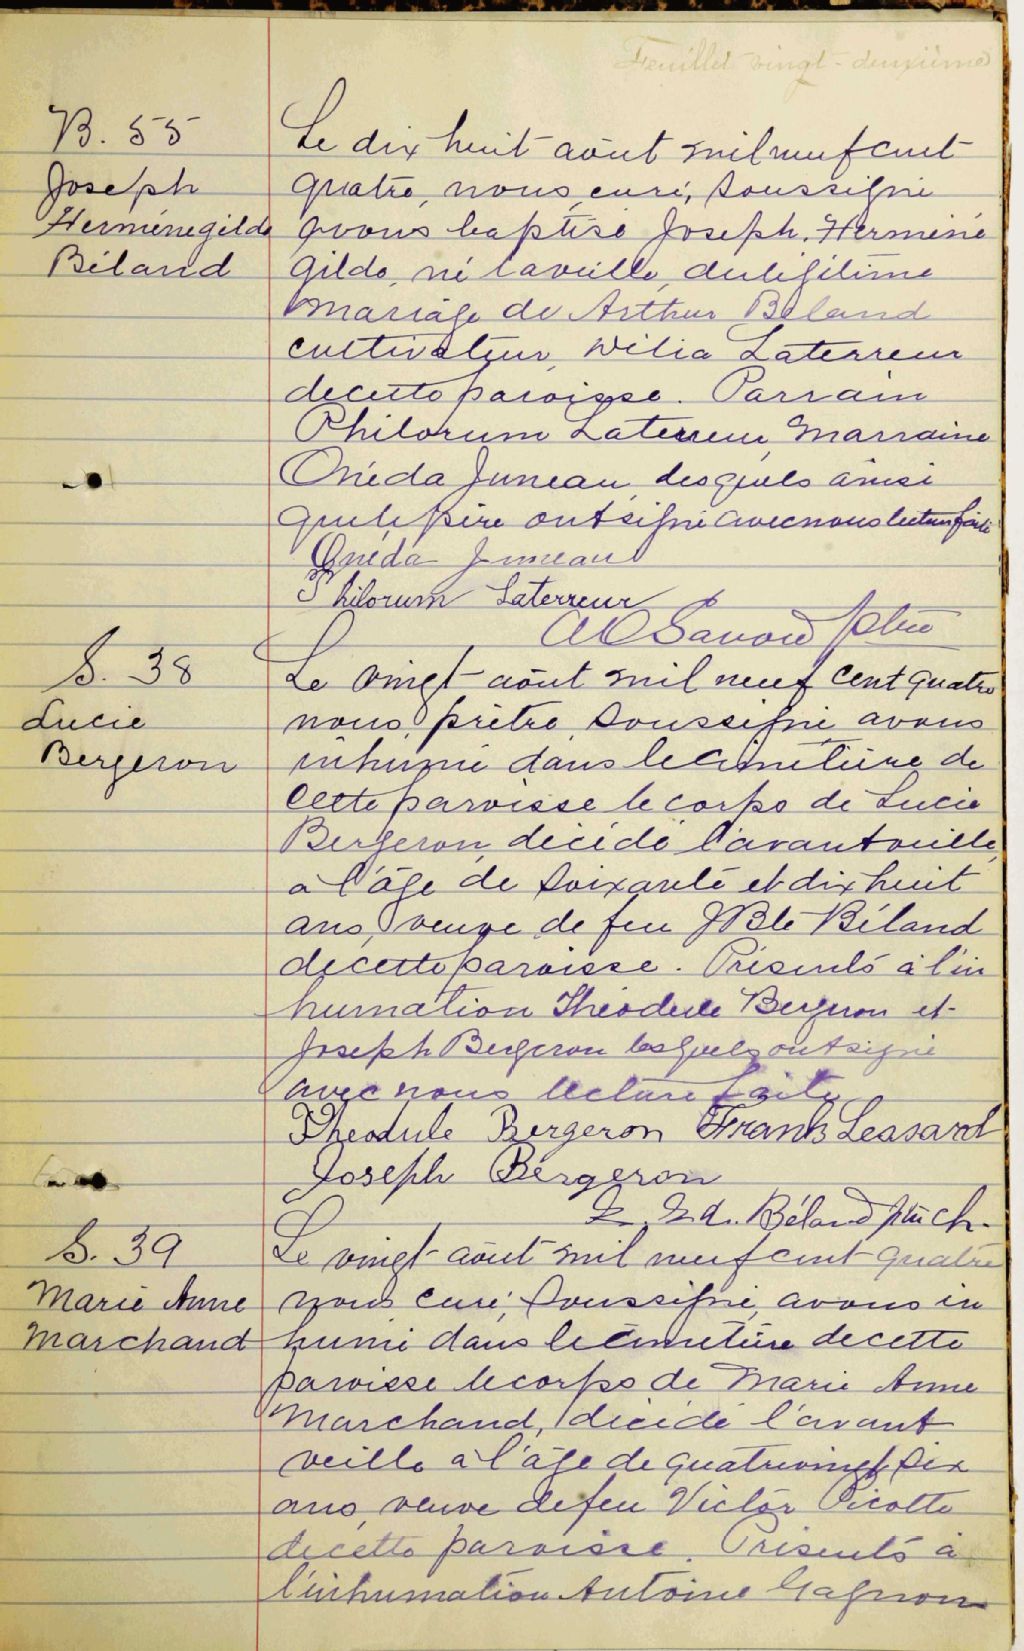 Feuillet vingt-deuxième
B. 55
Joseph
Herménegilde
Béland
Le dix huit août mil neuf cent
quatre, nous, curé, soussigné
avons baptisé Joseph, Herméné
gilde, né la veille, du légitime
mariage de Arthur Béland
cultivateur, Wilia Laterreur
de cette paroisse. Parrain
Philorum Laterreur, Marraine
Onéda Juneau, lesquels ainsi
que le père ont signé avec nous lecture faite
Onéda Juneau
Philorum Laterreur
Ptre
S. 38
Lucie
Bergeron
Le vingt août mil neuf cent quatre
nous, prêtre, soussigné avons
inhumé dans le cimetière de
cette paroisse le corps de Lucie
Bergeron, décédé l'avant veille,
à l'âge de soixante et dix huit
ans, veuve de feu JBte Béland
de cette paroisse. Présents à l'in
humation Théodule Bergeron et
Joseph Bergeron lesquels ont signé
avec nous lecture faite
Théodule Bergeron Frank Lessard
Joseph Bergeron
Béland ptre ch.
S. 39
Marie Anne
Marchand
Le vingt août mil neuf cent quatre
nous curé, soussigné, avons in
humé dans le cimetière de cette
paroisse le corps de Marie Anne
Marchand, décédé l'avant
veille à l'âge de quatrevingt six
ans, veuve de feu Victor Picotte
de cette paroisse. Présents à
l'inhumation Antoine Gagnon